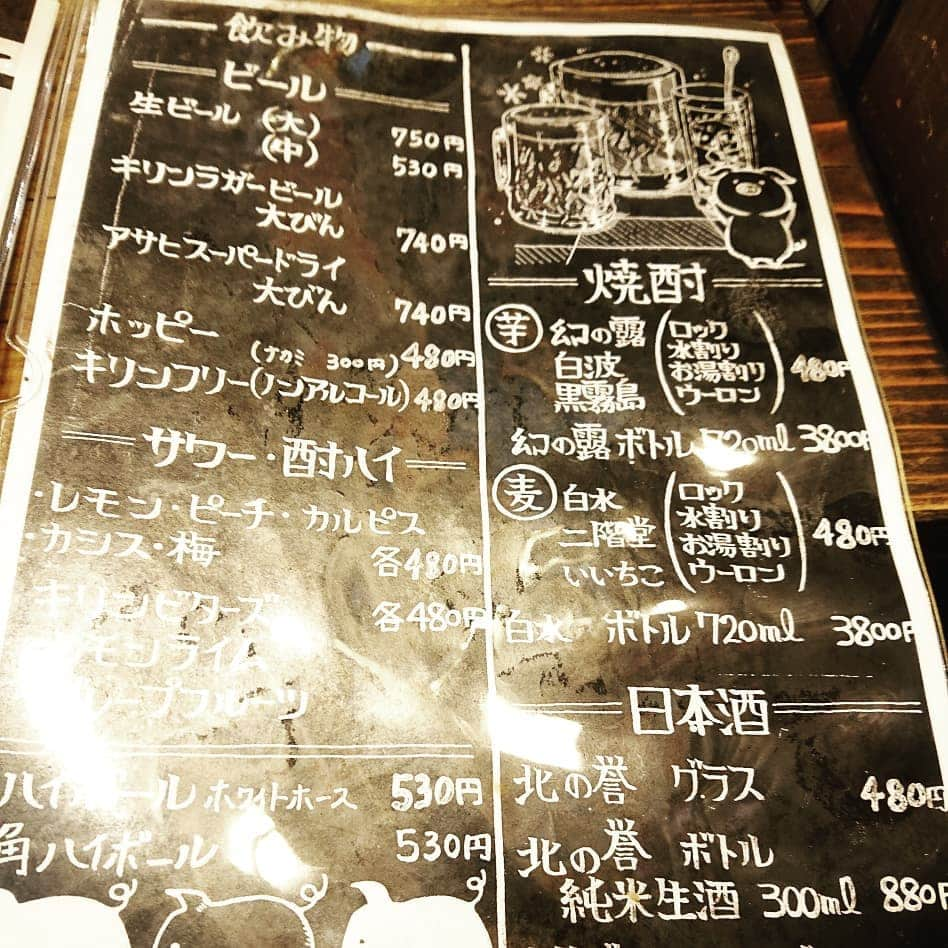 飲み物
ビール
生ビール (大) 750円
(中) 530円
キリンラガービール
大びん 740円
アサヒスーパードライ
大びん 740円
ホッピー (ナカミ 300円) 480円
キリンフリー(ノンアルコール) 480円
サワー・酎ハイ
・レモン・ピーチ・カルピス
・カシス・梅 各480円
キリンビターズ 各480円
モンライム
レープフルーツ
ハイボール ホワイトホース 530円
角ハイボール 530円
焼酎
芋 幻の露
白波
黒霧島
(ロック
水割り
お湯割り
ウーロン) 480円
幻の露 ボトル 720ml 3800円
麦 白水
二階堂
いいちこ
(ロック
水割り
お湯割り
ウーロン) 480円
白水 ボトル 720ml 3800円
日本酒
北の誉 グラス 480円
北の誉 ボトル
純米生酒 300ml 880円